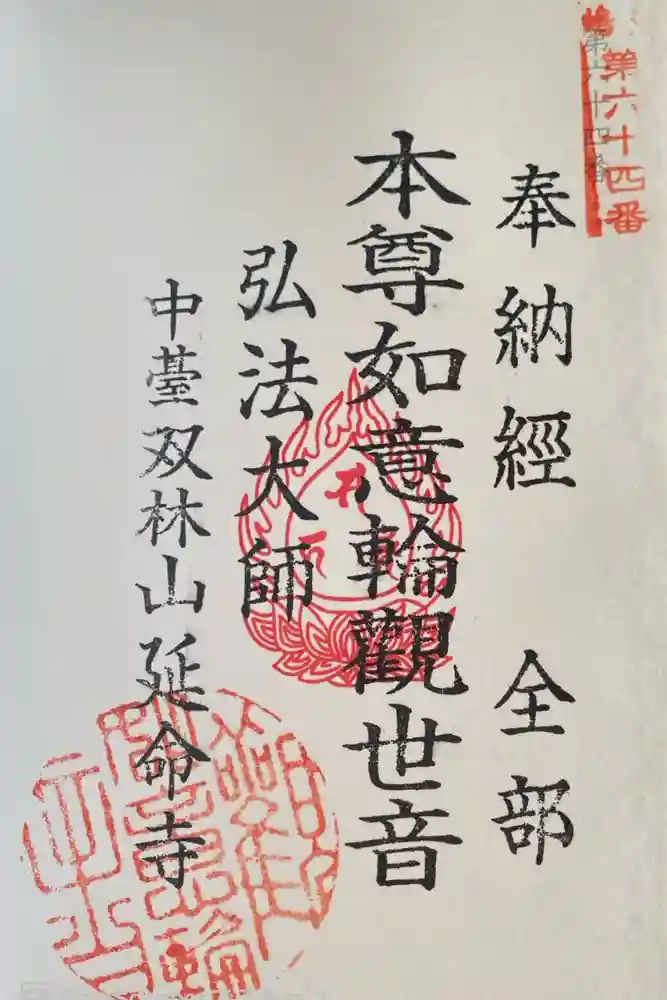 第六十四番
第六十四番
奉納經 全部
本尊如意輪觀世音
弘法大師
中臺双林山延命寺